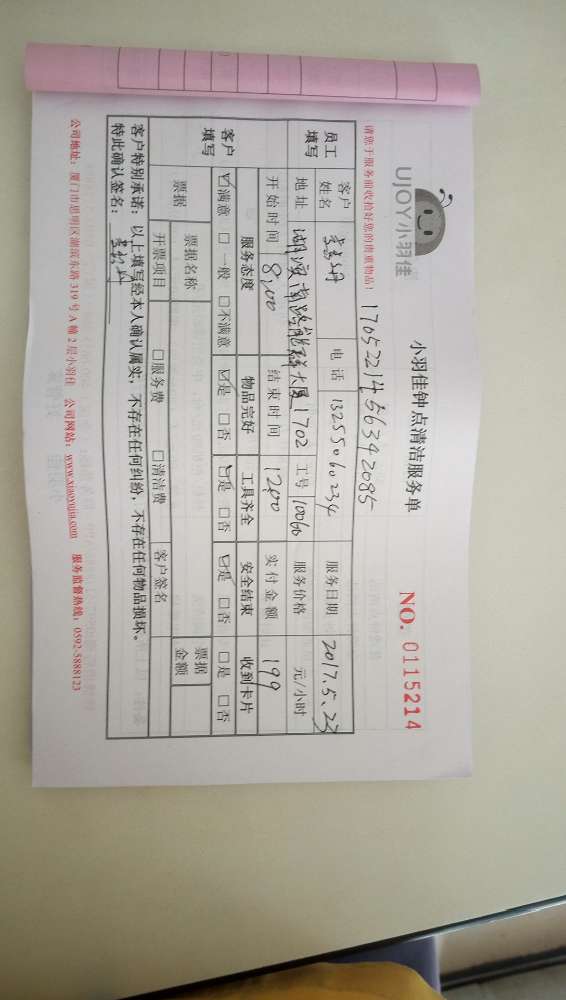 UJOY小羽佳
小羽佳钟点清洁服务单
NO. 0115214
请您于服务前收捡好您的贵重物品!
1705221456342085
员工填写
客户姓名 电话 13255060234 服务日期 2017.5.23
地址 湖滨南路能源大厦1702 工号 10060 服务价格 元/小时
开始时间 8:00 结束时间 12:00 实付金额 199
客户填写
服务态度 物品完好 工具齐全 安全结束 收到卡片
☑满意 □一般 □不满意 ☑是 □否 ☑是 □否 ☑是 □否 □是 □否
票据 票据名称 票据金额
开票项目 □服务费 □清洁费 客户签名
客户特别承诺:以上填写经本人确认属实,不存在任何纠纷,不存在任何物品损坏。
特此确认签名:
公司地址:厦门市思明区湖滨东路319号A幢2层小羽佳 公司网站:www.xiaoyujia.com 服务监督热线:0592-5888123